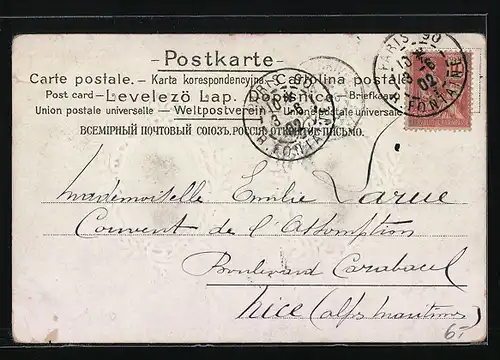 Postkarte
Carte postale. – Karta korespondencyjna. – Cartolina postale.
Post card – Levelező Lap. – Dopisnice – Briefkaart
Union postale universelle – Weltpostverein – Unione postale universale
ВСЕМІРНЫЙ ПОЧТОВЫЙ СОЮЗЪ. РОССІЯ. ОТКРЫТОЕ ПИСЬМО.
PARIS - 90
8 - 6
02
R. FONTAINE
PARIS - 90
8 - 6
02
R. FONTAINE
Mademoiselle Emilie Larue
Couvent de l'Assomption
Boulevard Carabacel
Nice (alpes maritimes)
6.-